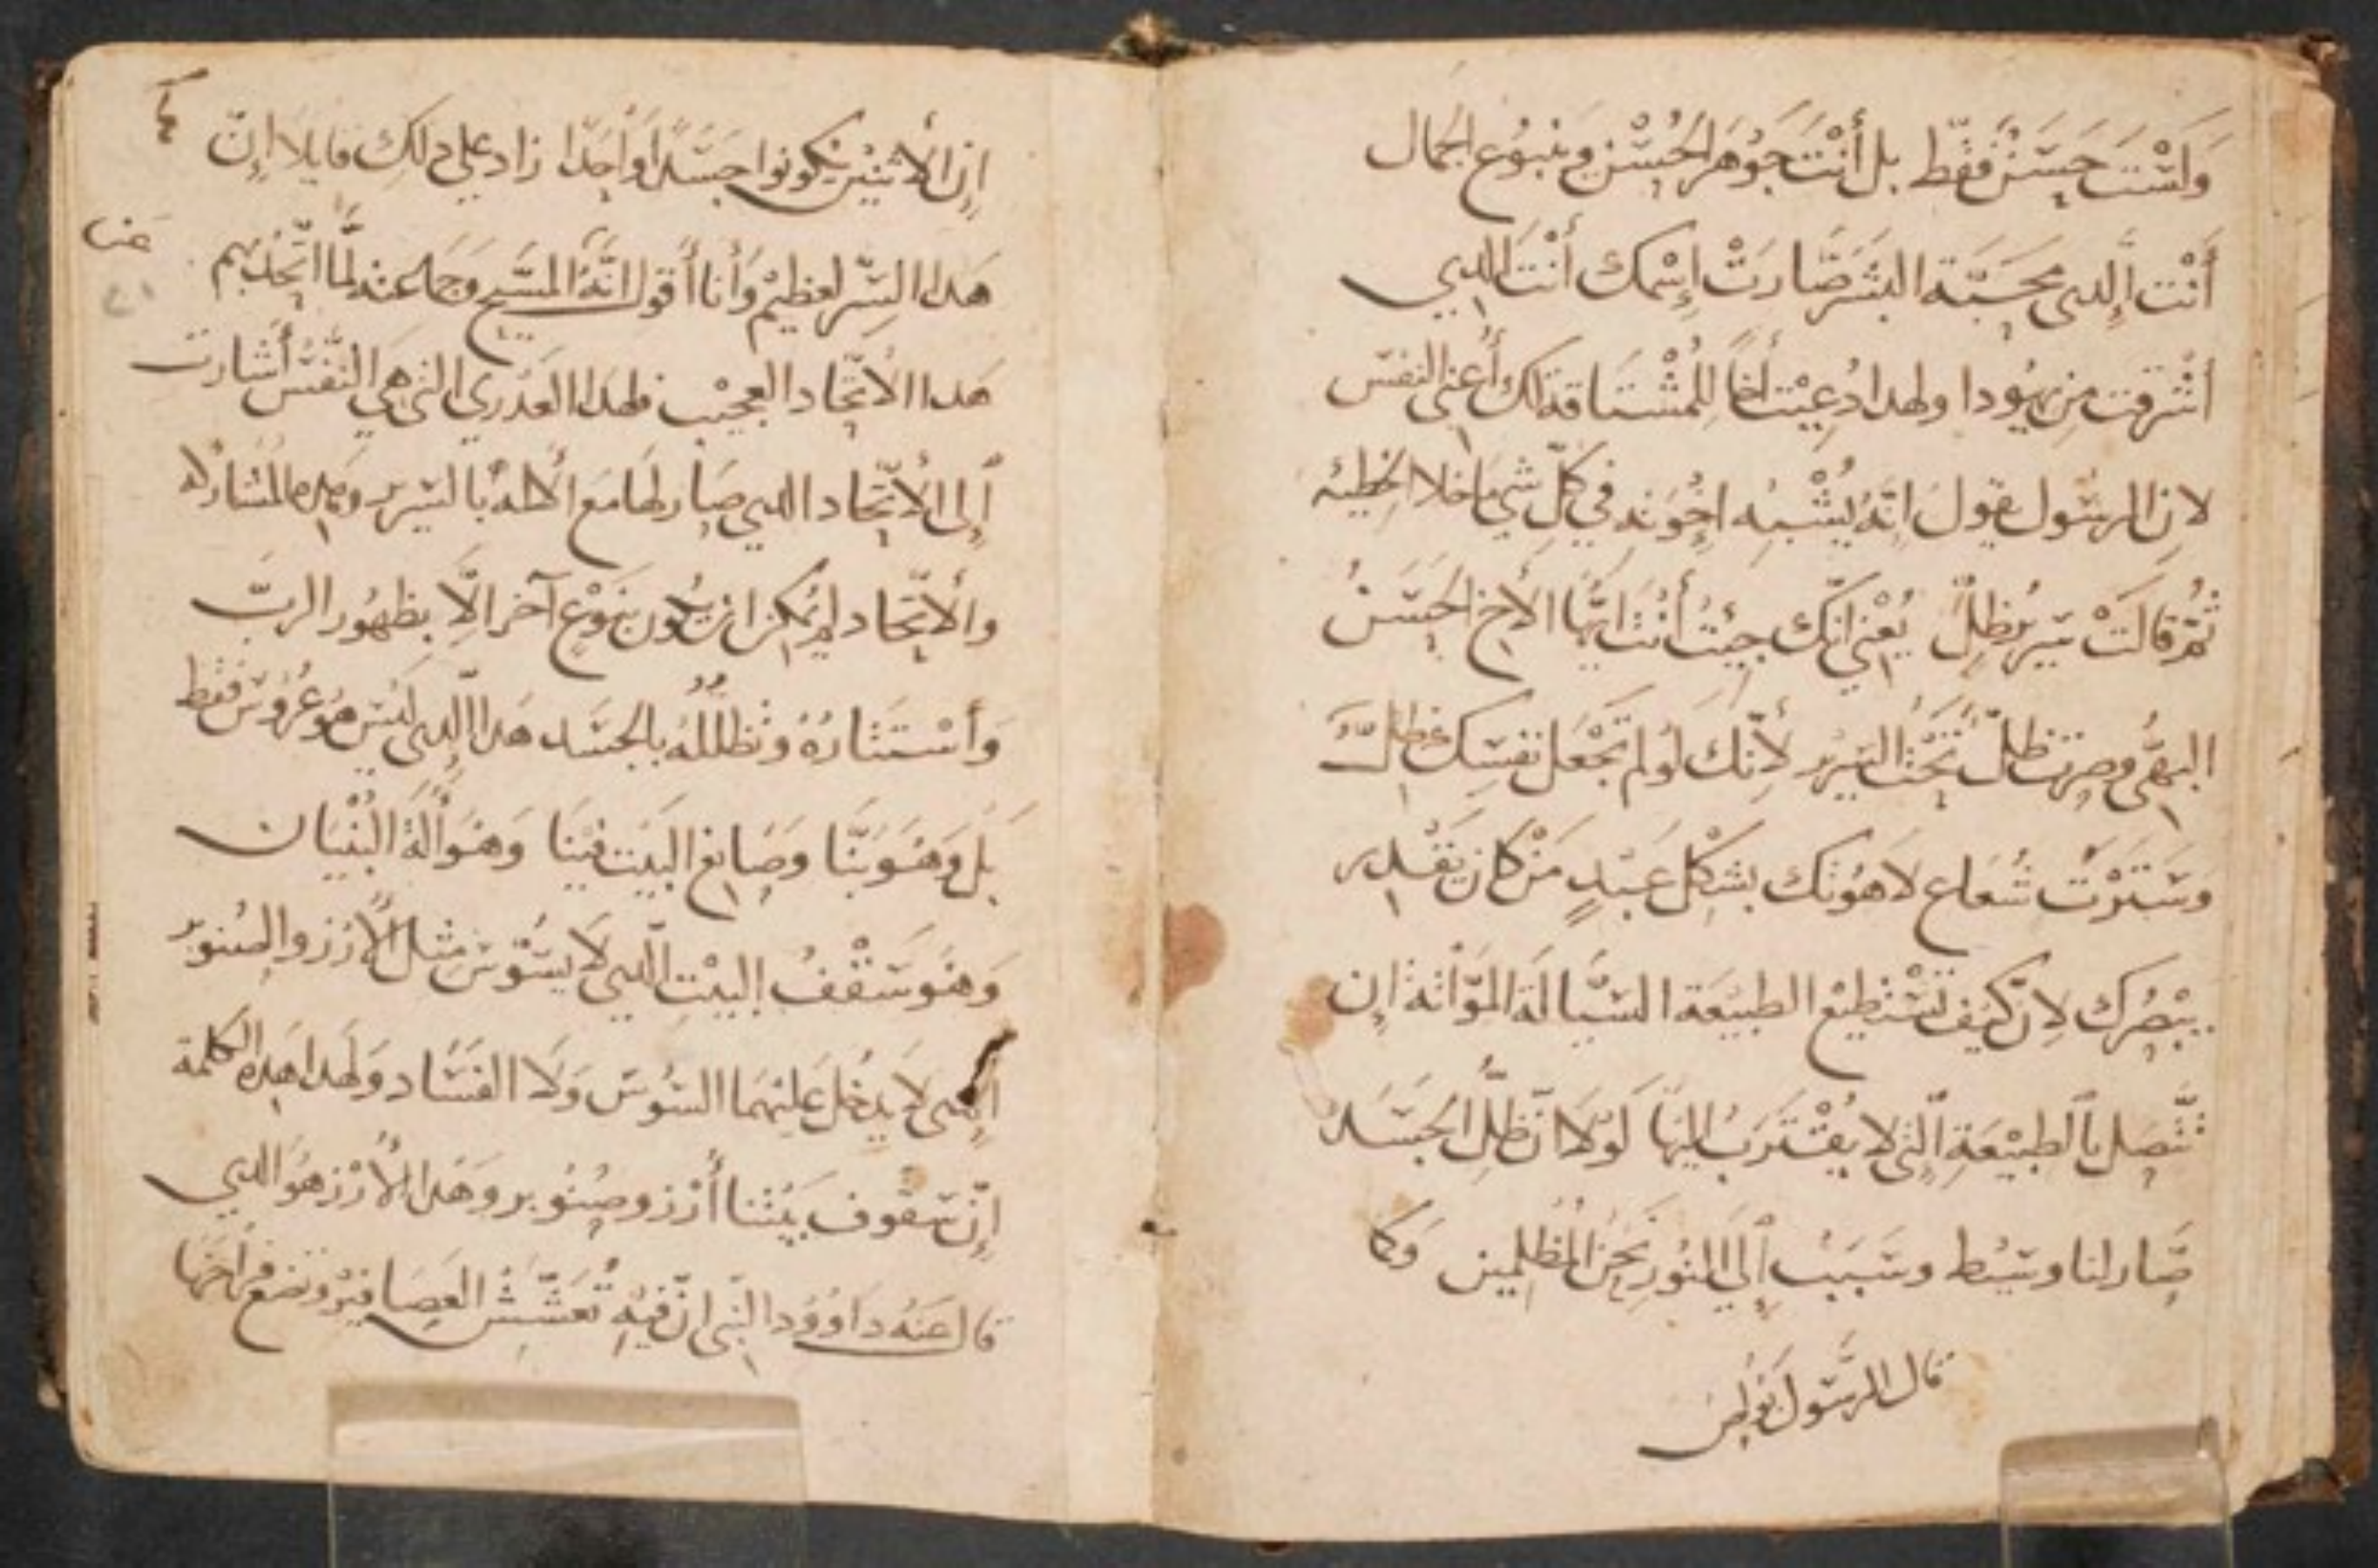 وَلَسْتَ حَسَنٌ فَقَط بل أَنْتَ جَوْهَر الحُسْن وينبُوع الجَمال
أَنْت الَّدي محَبَّة البَشَر صَارَتْ إِسْمك أَنْتَ الدي
أشْرَقت مِن يهُودا ولهدا دُعِيْت أخاً لِلمُشْتَاقة لك أَعني النفس
لانِ الرسُول يقول انَّهُ يُشْبِه اخْوَته في كلّ شي ما خلا الخطيه
ثُمّ قالَتْ سَرِير نظِلّ يُعْني انّك جِيْتُ أَنْتَ ايّها الأخ الحَسَنُ
البهيّ وصِرت ظلّ تَحْت السَرير لأنّك لَو لم تَجْعَل نفسَك مظلل
وسَتَرْت شُعاع لاهُوتك بشكْل عَبْدٍ مَنْ كان يَقْدر
يبْصُرك لانّ كَيف تسْتطيع الطبيْعَة السَيّالة المَوّاتة ان
تتَّصِل بالطبيْعَةِ الّتي لا يقْتَرَبُ اليْهَا لَوْلا انّ ظلّ الجَسَد
صَار لنا وسَيط وسَبَبُ إلي النُور نحْن المُظلمين وَكما
قال الرسُول بولص
إن الأثنين يكونوا جسَداً وَاحِدًا زاد علي دلك قايلا إنّ
هَدا السِّر لعظيْم وَأنا أقول انّهُ المسَيح وَجماعته لمّا اتّحد بهم
هَدا الأتّحاد العجيْب فلهدا العَدري التي هي النَّفسُ أشارت
إلى الأتّحاد الدي صَار لها مَع الألهُ بالسَرير وَهده المُشاركه
والأتّحاد لم يُمكن ان تكون بنَوْعٍ آخر الَّا بظهُور الربّ
وَأسْتتَارُهُ وتظللهُ بالجسَد هَدا الدي ليْس هُوَ عرُوس فقط
بَل وَهُوَ بَنّا وصَانع البَيْت فيْنَا وَهُوَ ألَة البُنْيَان
وَهُوَ سَقْفُ البيْت الّدي لَا يسَوّسَ مِثل الأرز والصنوبر
الدي لا يدْخل عَليْهمَا السُوس وَلَا الفسَاد وَلهدا هَدهِ الكلمة
إنّ سَقوف بَيْتنا أرْز وصِنُوبر وَهَدا الأرْز هُوَ الدي
قال عَنهُ دَاوُود النّبي انّ فيْهِ تُعَشّشُ العصَافيْر وتضع فراخهَا